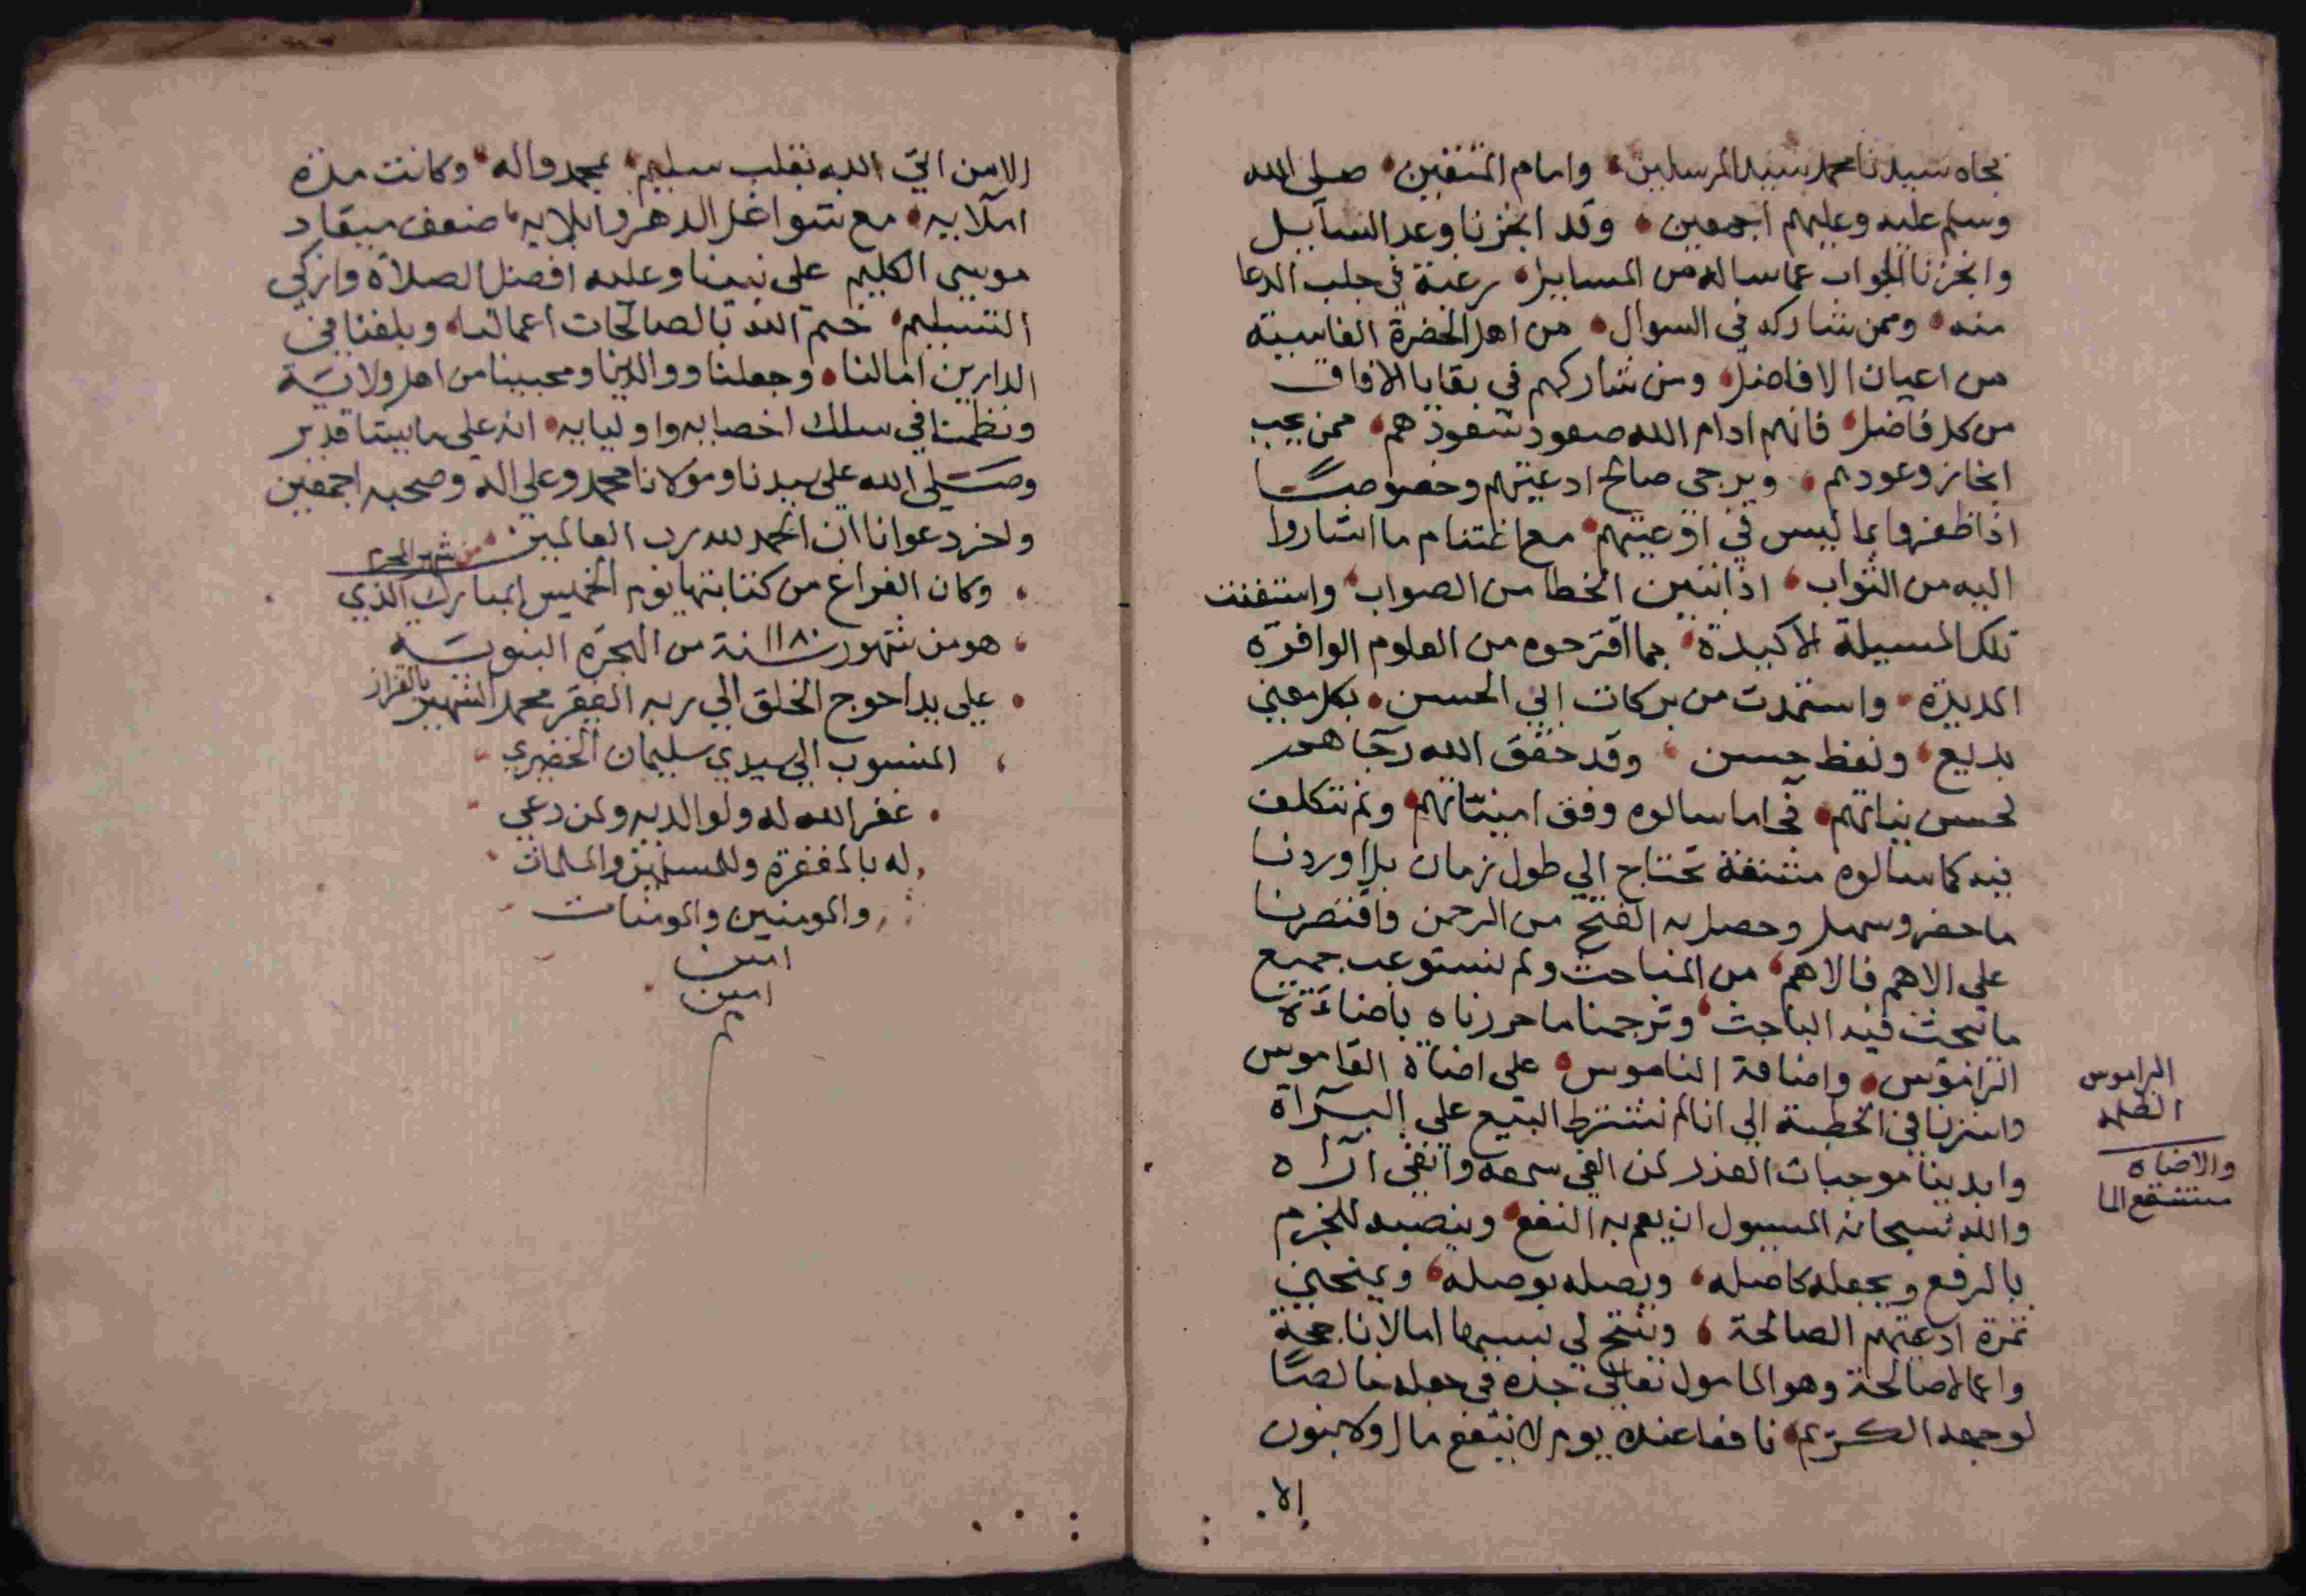 بجاه سيدنا محمد سيد المرسلين وامام المتقين صلى الله
وسلم عليه وعليهم اجمعين وقد انجزنا وعد السآيل
وانجزنا الجواب عما ساله من المسايل رغبة في جلب الدعا
منه وممن شاركه في السوال من اهل الحضرة الفاسية
من اعيان الافاضل ومن شاركهم في بقايا الافاق
من كل فاضل فانهم ادام الله صعود سعودهم ممن يجب
انجاز وعودهم ويرجى صالح ادعيتهم وخصوصًا
اذا ظفروا بما ليس في اوعيتهم مع اغتنام ما اشاروا
اليه من الثواب اذا تبين الخطا من الصواب واستفتت
تلك المسيلة الاكيدة بما اقترحوه من العلوم الوافرة
المديدة واستمدت من بركات ابي الحسن بكل معنى
بديع ولفظ حسن وقد حقق الله رجآهم
لحسن نياتهم في اما سالوه وفق امنيّاتهم ولم نتكلف
فيه كما سالوه مشقة تحتاج الي طول زمان بل اوردنا
ما حضر وسهل وحصل به الفتح من الرحمن واقتصرنا
على الاهم فالاهم من المباحث ولم نستوعب جميع
ما يبحث فيه الباحث وترجمنا ما حررناه باضاءة
الراموس واضافة الناموس على اضاة القاموس
واشرنا في الخطبة الي انا لم نشترط البيع على البرآاة
وابدينا موجبات العذر لمن القى سمعه والقى ارآاه
والله سبحانه المسيول ان يعم به النفع وينصبه للجزم
بالرفع ويجعله كاصله ويصله بوصله ويمنحني
ثمرة ادعيتهم الصالحة وينتج لي بسببها امالا ناجحة
واعمالا صالحة وهو المامول تعالى جده في جعله خالصًا
لوجهه الكريم نافعا عنده يوم لا ينفع مال ولا بنون
إلا
الراموس
والاضاه
مستنقع الما
الا من اتي الله بقلب سليم بمحمد واله وكانت مدة
املآيه مع شواغل الدهر وابلايه ضعف ميقاد
موسى الكليم على نبينا وعليه افضل الصلاة وازكى
التسليم ختم الله بالصالحات اعمالنا وبلغنا في
الدارين امالنا وجعلنا ووالدينا ومحبينا من اهل ولايته
ونظمنا في سلك اخصايه واوليايه انه على ما يشا قدير
وصلى الله على سيدنا ومولانا محمد وعلي اله وصحبه اجمعين
واخر دعوانا ان الحمد لله رب العالمين
من شهر المحرم
وكان الفراغ من كتابتها يوم الخميس المبارك الذي
هو من شهور سنة ١١٨٠ من الهجرة النبوية
على يد احوج الخلق الي ربه الفقير محمد الشهير بالقزاز
المنسوب الي سيدي سليمان الخضيري
غفر الله له ولوالديه ولمن دعى
له بالمغفرة وللمسلمين والمسلمات
والمومنين والمومنات
امين
امين
م